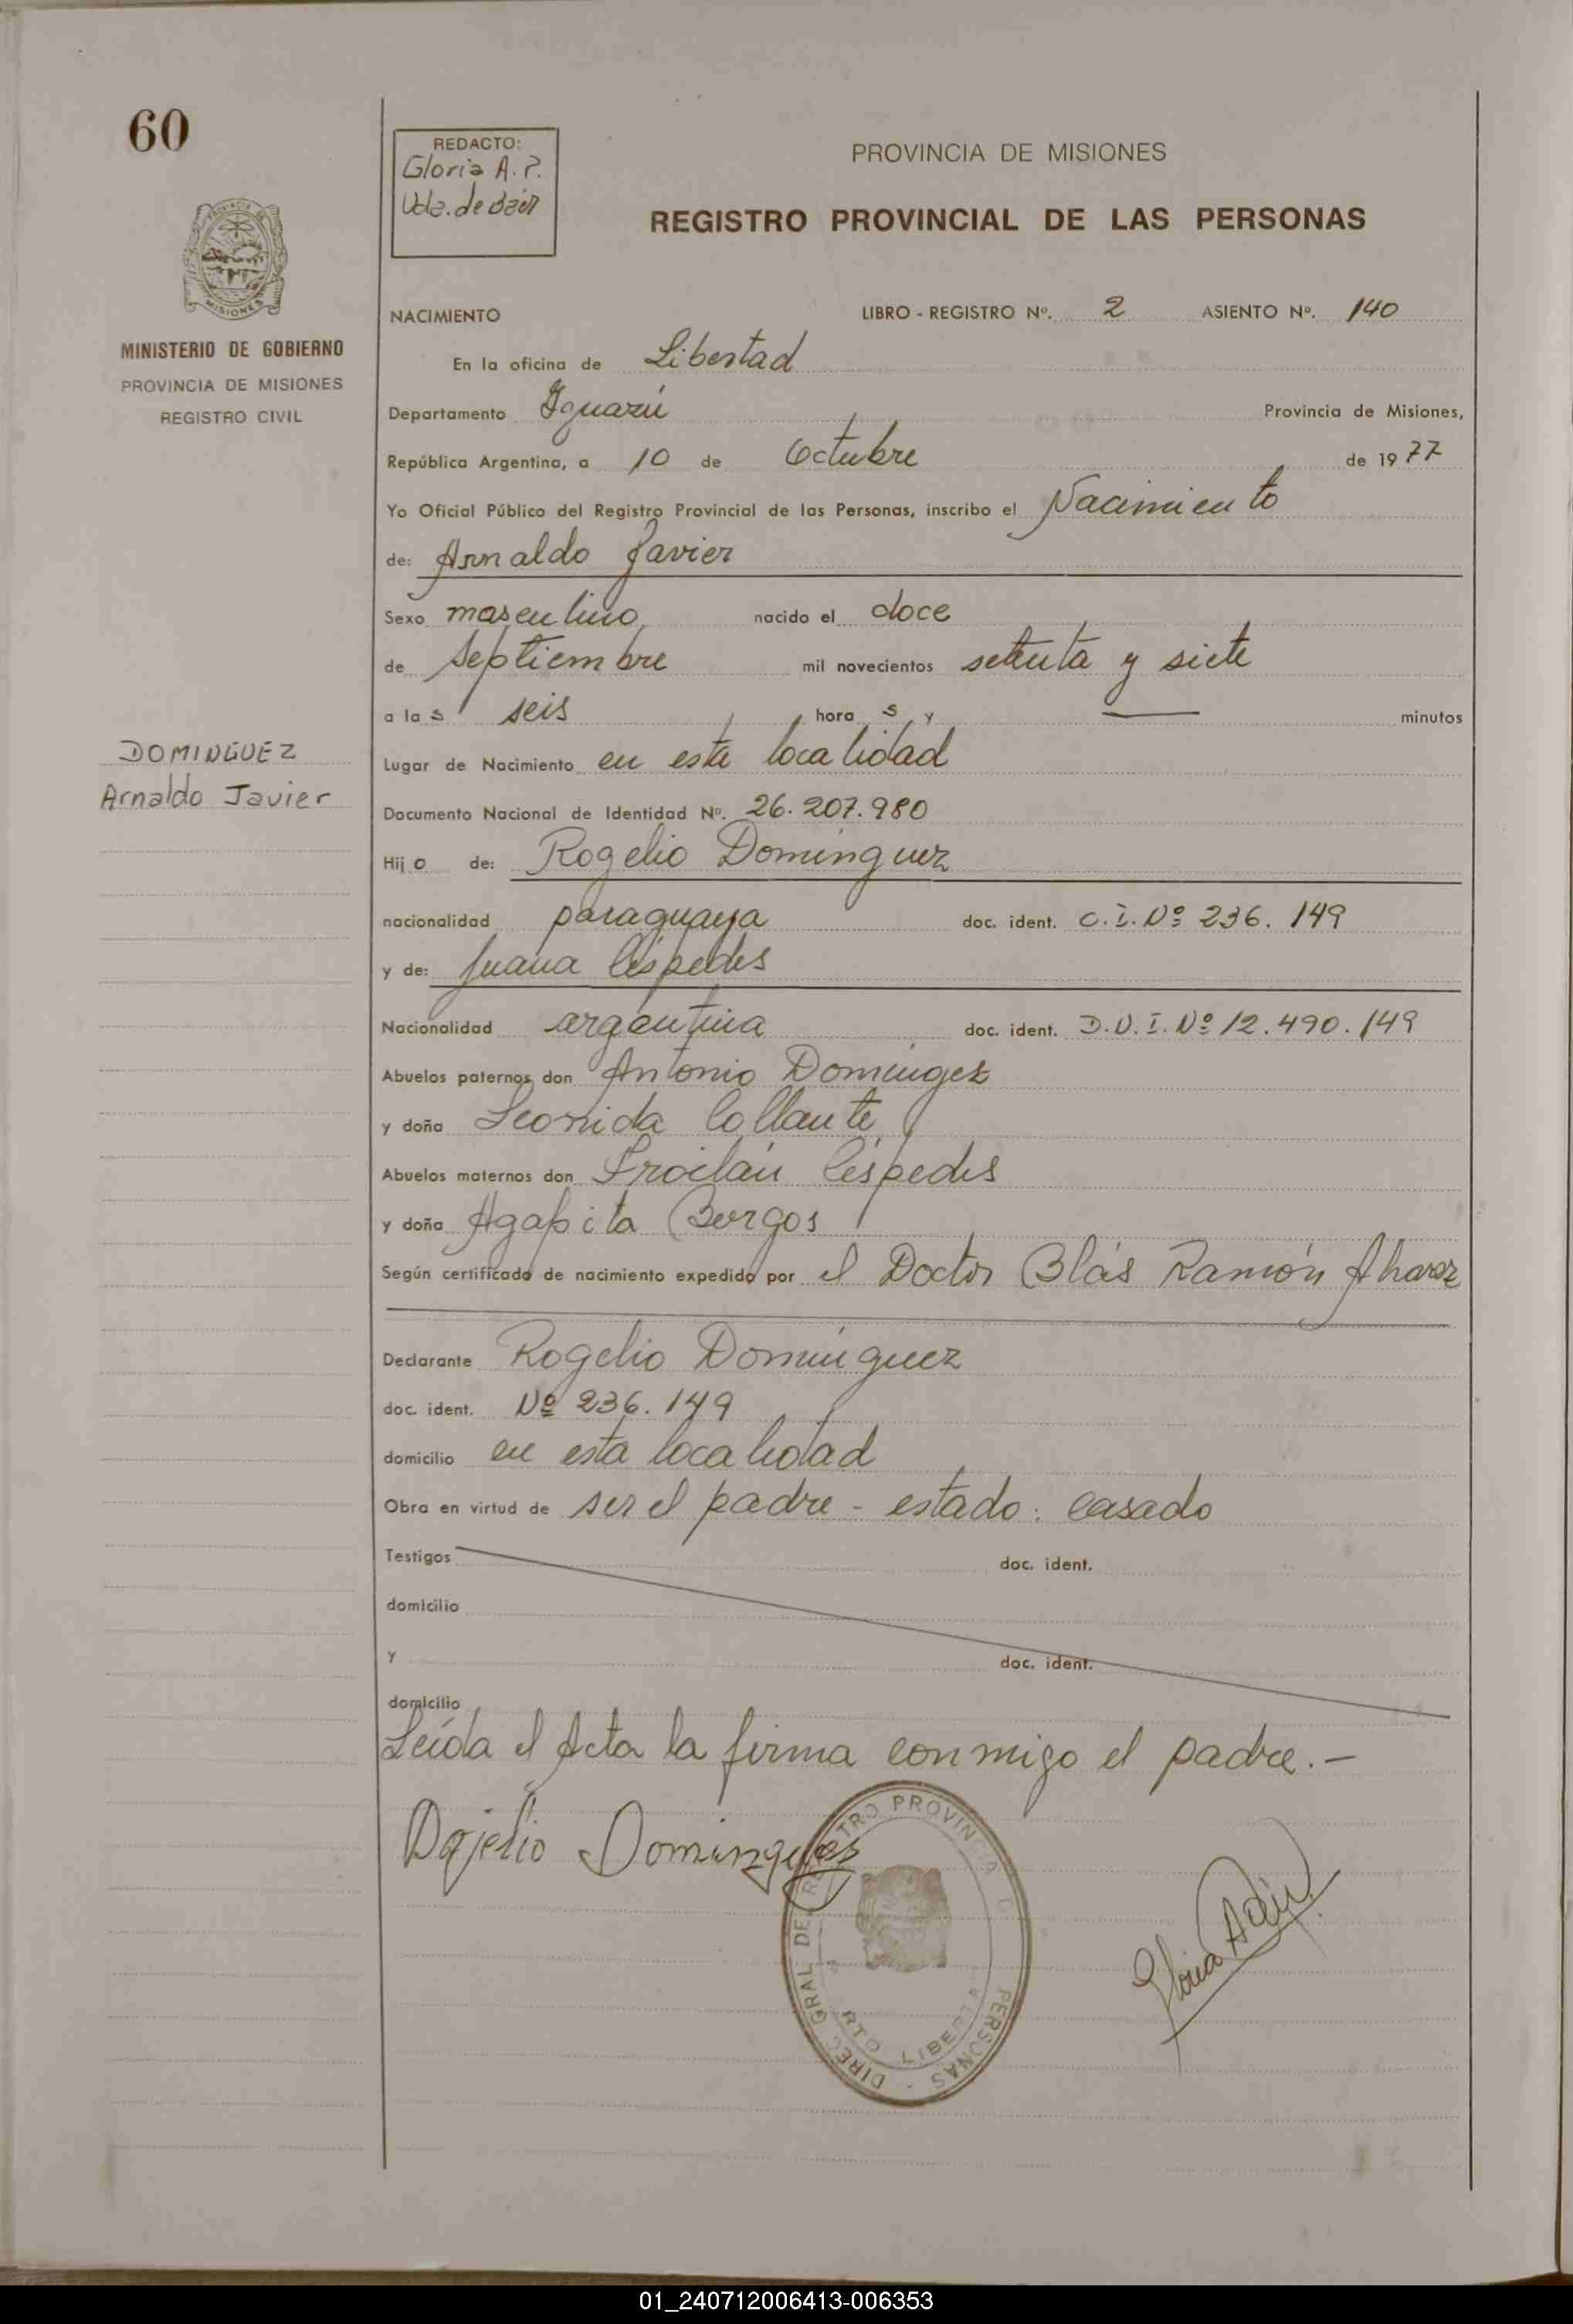 60
REDACTO:
Gloria A. P.
Vda. de
PROVINCIA DE MISIONES
REGISTRO PROVINCIAL DE LAS PERSONAS
PROVINCIA DE
MISIONES
MINISTERIO DE GOBIERNO
PROVINCIA DE MISIONES
REGISTRO CIVIL
NACIMIENTO LIBRO - REGISTRO Nº. 2 ASIENTO Nº. 140
En la oficina de Libertad
Departamento Iguazú Provincia de Misiones,
República Argentina, a 10 de Octubre de 1977
Yo Oficial Público del Registro Provincial de las Personas, inscribo el Nacimiento
de: Arnaldo Javier
Sexo masculino, nacido el doce
de Septiembre mil novecientos setenta y siete
a las seis horas y — minutos
DOMINGUEZ
Arnaldo Javier
Lugar de Nacimiento en esta localidad
Documento Nacional de Identidad Nº. 26.207.980
Hijo de: Rogelio Dominguez
nacionalidad paraguaya doc. ident. C.I. Nº 236.149
y de: Juana Céspedes
Nacionalidad argentina doc. ident. D.N.I. Nº 12.490.149
Abuelos paternos don Antonio Dominguez
y doña Leonida Collante
Abuelos maternos don Froilán Céspedes
y doña Agapita Borgos
Según certificado de nacimiento expedido por el Doctor Blás Ramón Alvarez
Declarante Rogelio Dominguez
doc. ident. Nº 236.149
domicilio en esta localidad
Obra en virtud de ser el padre - estado: casado
Testigos doc. ident.
domicilio
y doc. ident.
domicilio
Leída el Acta la firma conmigo el padre.-
Rojelio Domingues
DIREC GRAL DE REGISTRO PROVINCIAL D PERSONAS -
RTO LIBERTA
Gloria
01_240712006413-006353